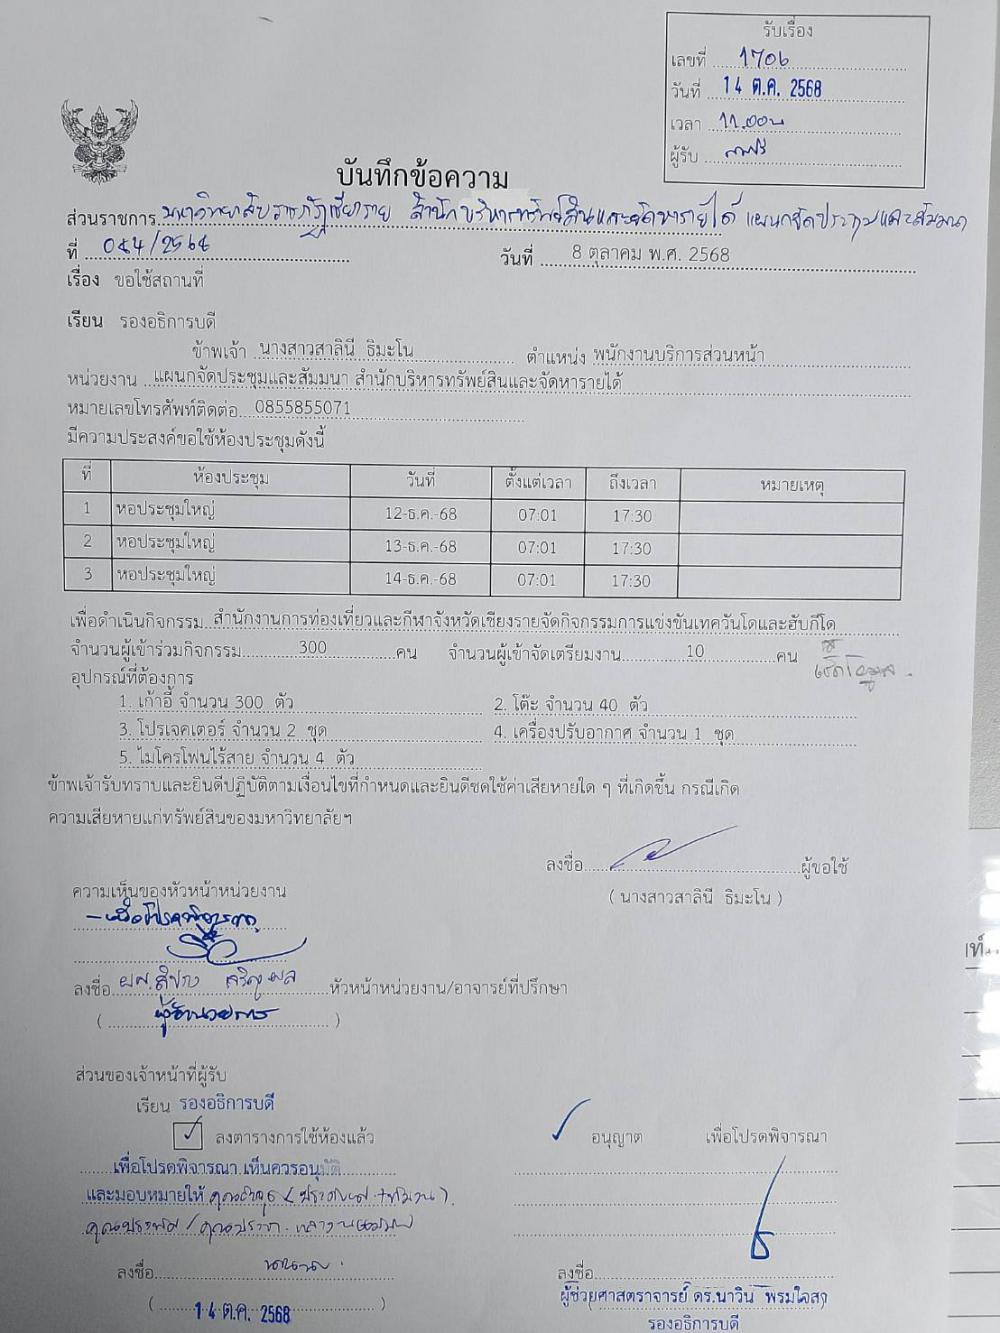 รับเรื่อง
เลขที่ 1706
วันที่ 14 ต.ค. 2568
เวลา 11.00น
ผู้รับ
บันทึกข้อความ
ส่วนราชการ มหาวิทยาลัยราชภัฏเชียงราย สำนักบริหารทรัพย์สินและจัดหารายได้ แผนกจัดประชุมและสัมมนา
ที่
วันที่ 8 ตุลาคม พ.ศ. 2568
เรื่อง ขอใช้สถานที่
เรียน รองอธิการบดี
ข้าพเจ้า นางสาวสาลินี ธิมะโน ตำแหน่ง พนักงานบริการส่วนหน้า
หน่วยงาน แผนกจัดประชุมและสัมมนา สำนักบริหารทรัพย์สินและจัดหารายได้
หมายเลขโทรศัพท์ติดต่อ 0855855071
มีความประสงค์ขอใช้ห้องประชุมดังนี้
ที่ ห้องประชุม วันที่ ตั้งแต่เวลา ถึงเวลา หมายเหตุ
1 หอประชุมใหญ่ 12-ธ.ค.-68 07:01 17:30
2 หอประชุมใหญ่ 13-ธ.ค.-68 07:01 17:30
3 หอประชุมใหญ่ 14-ธ.ค.-68 07:01 17:30
เพื่อดำเนินกิจกรรม สำนักงานการท่องเที่ยวและกีฬาจังหวัดเชียงรายจัดกิจกรรมการแข่งขันเทควันโดและฮับกีโด
จำนวนผู้เข้าร่วมกิจกรรม 300 คน จำนวนผู้เข้าจัดเตรียมงาน 10 คน
อุปกรณ์ที่ต้องการ
1. เก้าอี้ จำนวน 300 ตัว 2. โต๊ะ จำนวน 40 ตัว
3. โปรเจคเตอร์ จำนวน 2 ชุด 4. เครื่องปรับอากาศ จำนวน 1 ชุด
5. ไมโครโฟนไร้สาย จำนวน 4 ตัว
ข้าพเจ้ารับทราบและยินดีปฏิบัติตามเงื่อนไขที่กำหนดและยินดีชดใช้ค่าเสียหายใด ๆ ที่เกิดขึ้น กรณีเกิด
ความเสียหายแก่ทรัพย์สินของมหาวิทยาลัยฯ
ลงชื่อ ผู้ขอใช้
( นางสาวสาลินี ธิมะโน )
ความเห็นของหัวหน้าหน่วยงาน
- เพื่อโปรดพิจารณา
ลงชื่อ หัวหน้าหน่วยงาน/อาจารย์ที่ปรึกษา
( ผู้อำนวยการ )
ส่วนของเจ้าหน้าที่ผู้รับ
เรียน รองอธิการบดี
ลงตารางการใช้ห้องแล้ว
เพื่อโปรดพิจารณา เห็นควรอนุมัติ
และมอบหมายให้
ลงชื่อ
( 14 ต.ค. 2568 )
อนุญาต เพื่อโปรดพิจารณา
ลงชื่อ
ผู้ช่วยศาสตราจารย์ ดร.นาวิน พรมใจสา
รองอธิการบดี